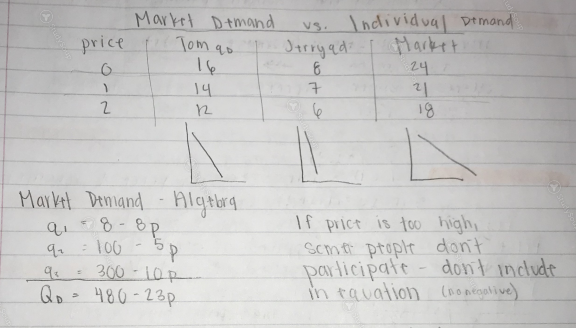 Market Demand vs. Individual Demand
price Tom qD Jerry qd Market
0 16 8 24
1 14 7 21
2 12 6 18
Market Demand - Algebra
q1 = 8 - 8p
q2 = 100 - 5p
q2 = 300 - 10p
QD = 480 - 23p
If price is too high,
some people don't
participate - don't include
in equation (no negative)